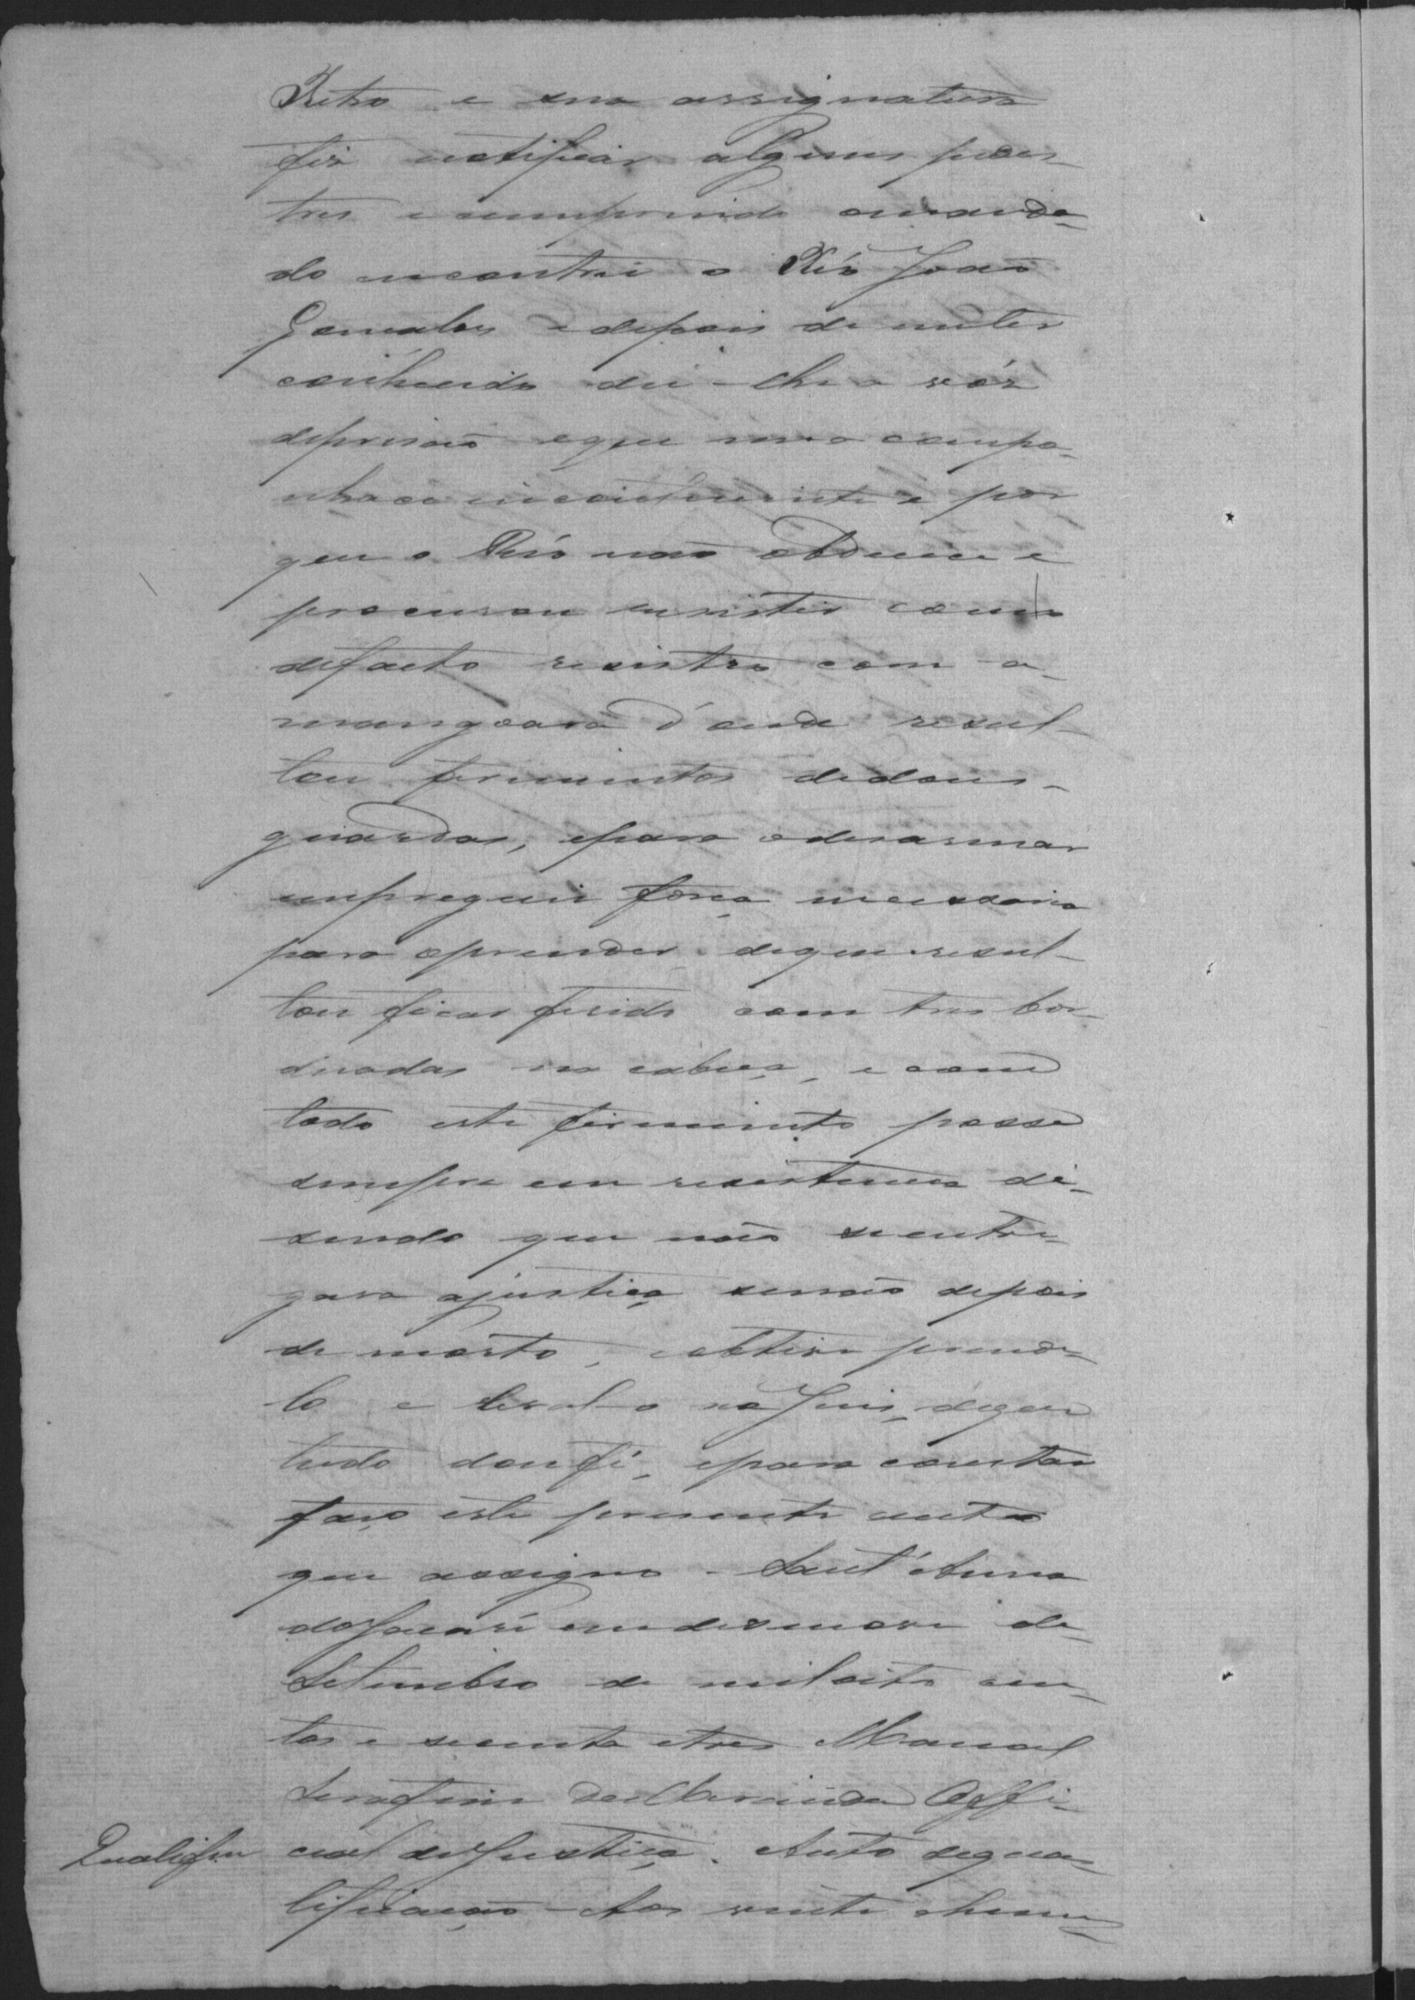 Retro e sua assignatura
fiz notificar alguns pedes-
tres e cumprindo o manda-
do encontrei o Réo João
Gonsalves e depois de me ter
conhecido dei-lhe a vóz
deprisão e que me acompa-
nhace incontinente e por
que o Réo não obdeuce e
procurou resistir como
defacto resistio com a
mangoara d'onde resul-
tou ferimentos dedous
guardas, epara odesarmar
empreguei força necessaria
para oprender dequem resul-
tou ficar ferido com tres bor-
duadas na cabeça, e com
todo este ferimento posse
sempre em resistencia di-
sendo que não se entre-
gava ajustiça senão depois
de morto, e obtive prende-
lo e leval-o ao Juis, deque
tudo dou fé, epara constar
faço este presente auto
que assigno. Sant'Anna
do em desenove de
Setembro de mil oito cen-
tos e secenta etres Manoel
Serafim de Miranda Offi-
Qualifcam cial de Justiça. Auto dequa-
lificação - Aos vinte